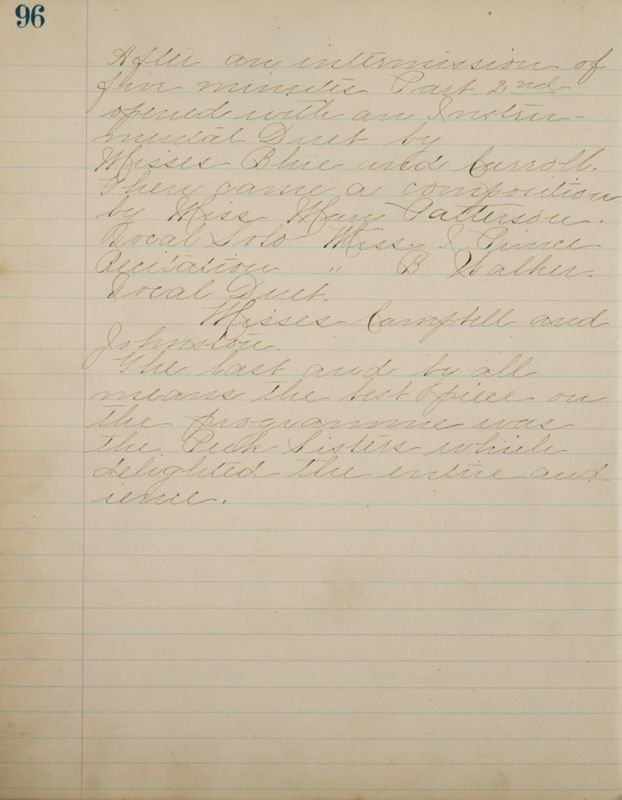 96
After an intermission of
five minutes Part 2nd
opened with an Instru-
mental Duet by
Misses Blue and Carroll.
Then came a composition
by Miss Mary Patterson.
Vocal Solo Miss. I Prince
Recitation " B. Walker.
Vocal Duet.
Misses Campbell and
Johnston.
The last and by all
means the best piece on
the programme was
the Peak Sisters which
delighted the entire aud-
ience.